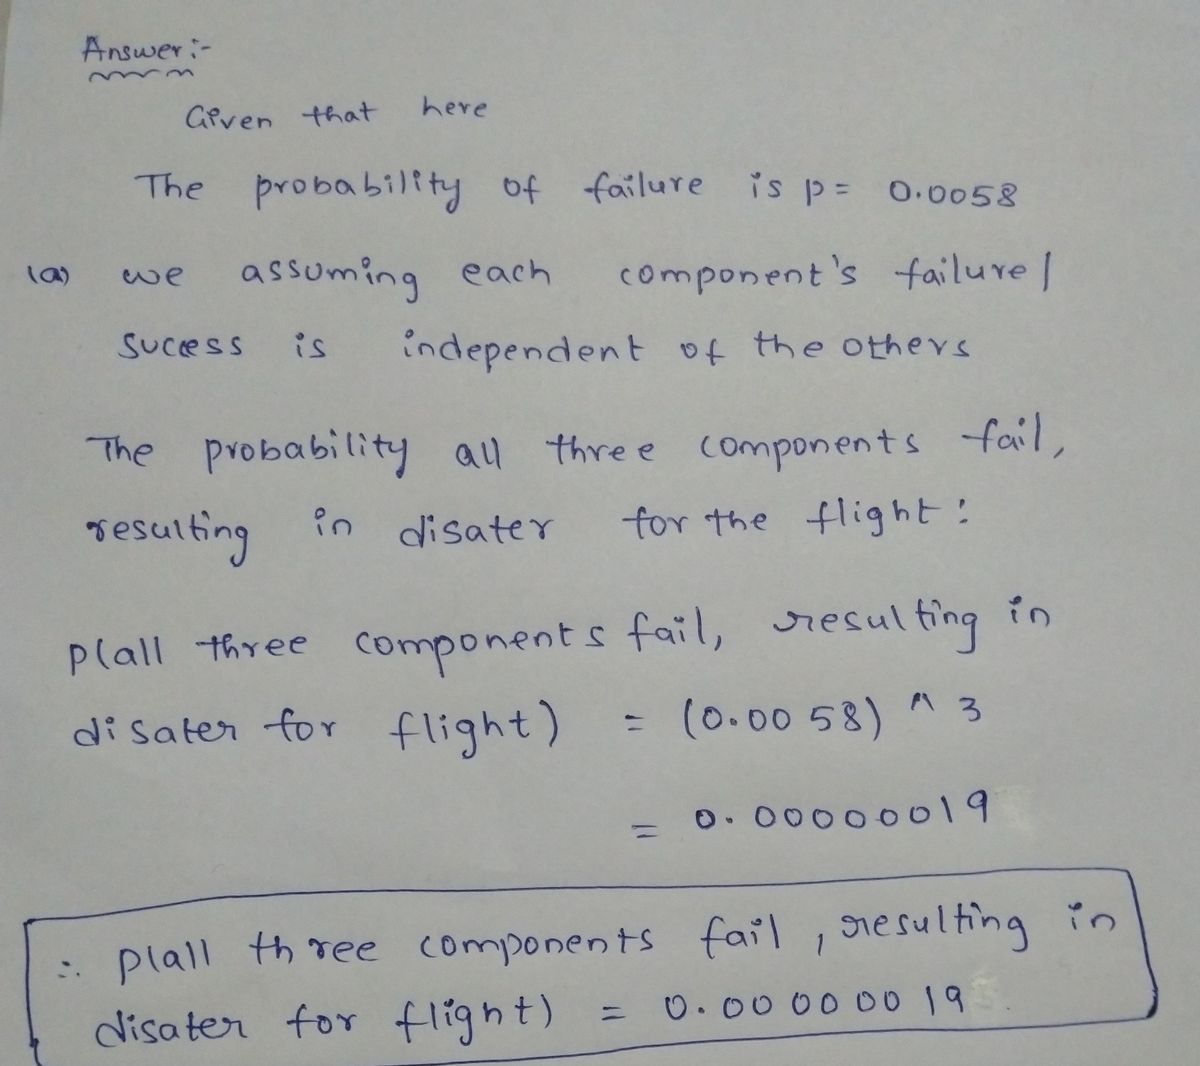 Answer:-
Given that here
The probability of failure is p = 0.0058
(a) we assuming each component's failure/
success is independent of the others
The probability all three components fail,
resulting in disater for the flight:
p(all three components fail, resulting in
disater for flight) = (0.0058) ^ 3
= 0.00000019
∴ p(all three components fail, resulting in
disater for flight) = 0.00000019